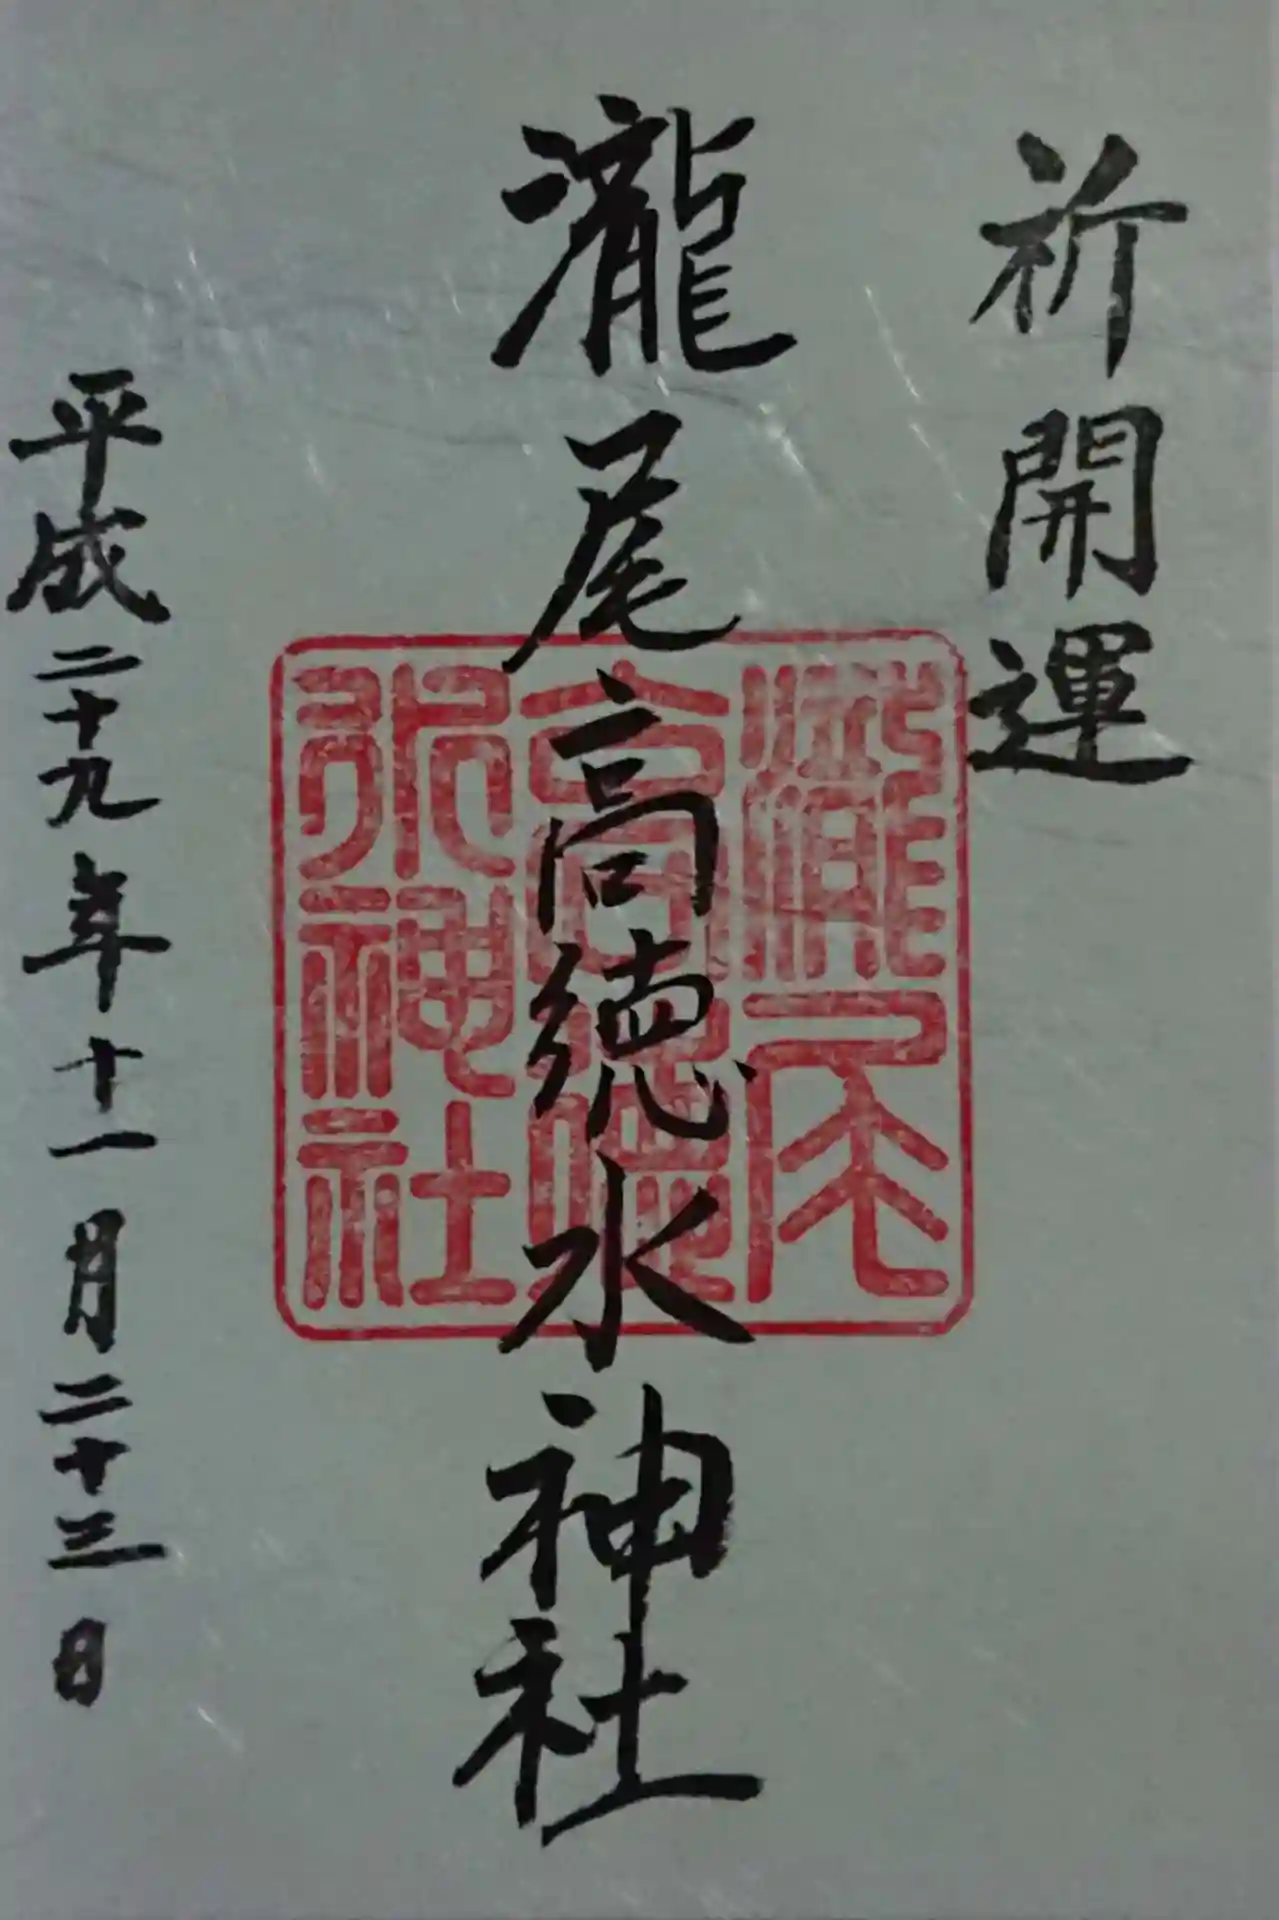 祈開運
瀧尾高徳水神社
瀧尾
高徳
水神社
平成二十九年十一月二十三日